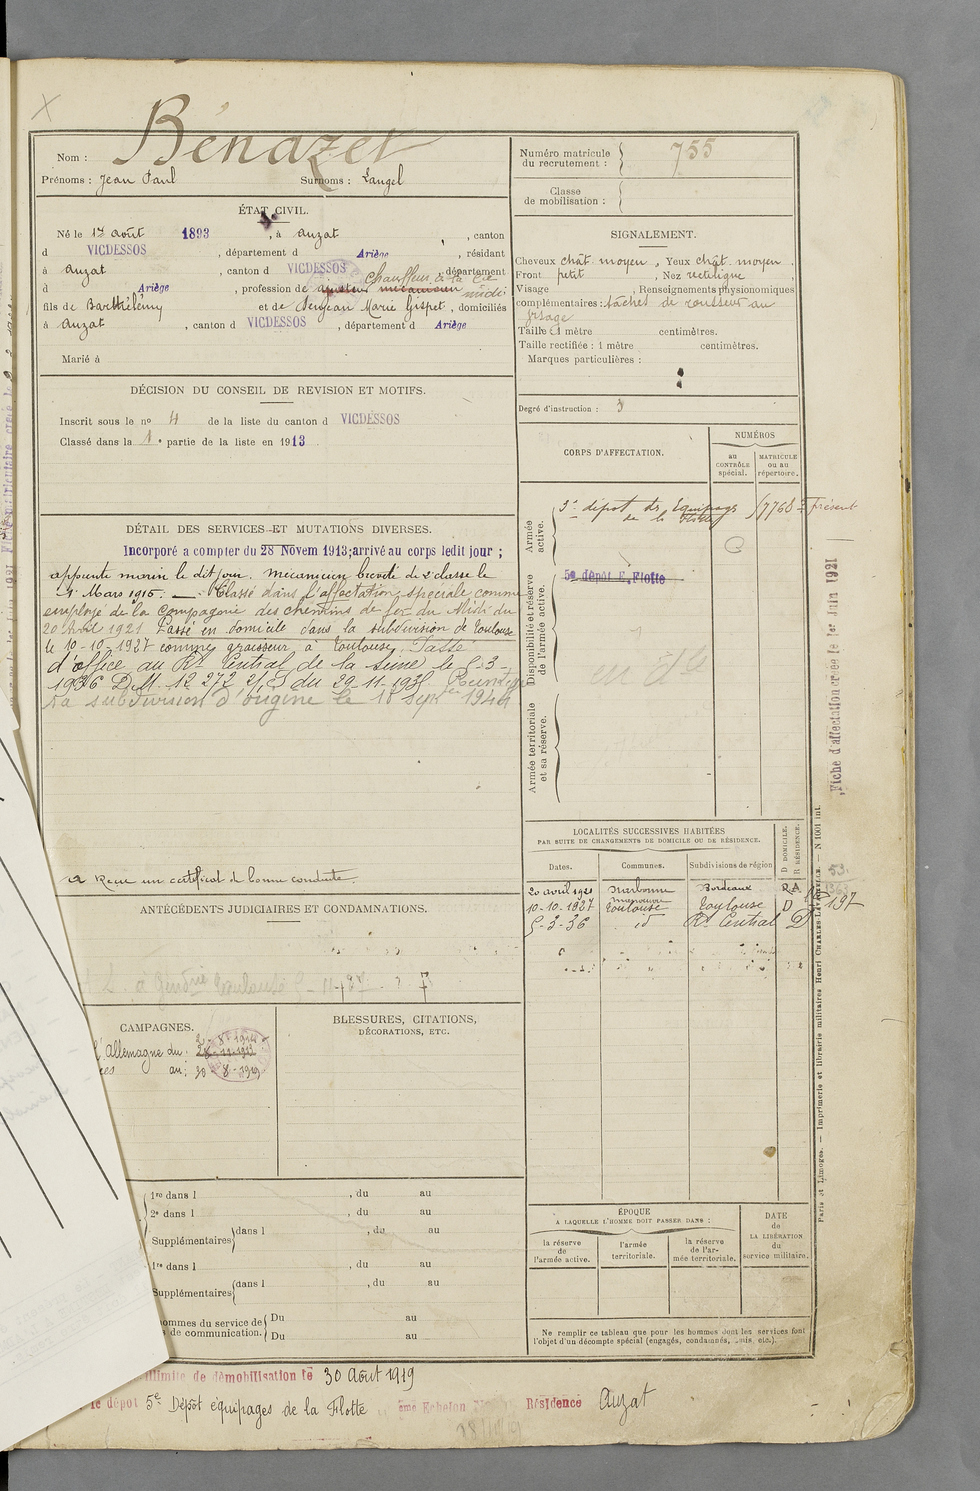 Bénazet
Nom :
Prénoms : Jean Paul Surnoms : Langel
Numéro matricule
du recrutement :
755
Classe
de mobilisation :
ÉTAT CIVIL.
Né le 17 août 1893, à Auzat, canton
d VICDESSOS, département d Ariège, résidant
à Auzat, canton d VICDESSOS, département
d Ariège, profession de ajusteur mécanicien
Chauffeur à la Cie
midi
fils de Barthélémy et de Marie Gispet, domiciliés
à Auzat, canton d VICDESSOS, département d Ariège
Marié à
SIGNALEMENT.
Cheveux chât. moyen, Yeux chât. moyen,
Front petit, Nez rectiligne,
Visage , Renseignements physionomiques
complémentaires : tâches de rousseur au
visage
Taille : 1 mètre centimètres.
Taille rectifiée : 1 mètre centimètres.
Marques particulières :
Degré d'instruction : 3
DÉCISION DU CONSEIL DE REVISION ET MOTIFS.
Inscrit sous le no 4 de la liste du canton d VICDESSOS
Classé dans la 1e partie de la liste en 1913
DÉTAIL DES SERVICES ET MUTATIONS DIVERSES.
Incorporé a compter du 28 Novem 1913; arrivé au corps ledit jour ;
apprenti marin le dit jour. mécanicien breveté de 2e classe le
1er Mars 1915. — Classé dans l'affectation spéciale comme
employé de la Compagnie des chemins de fer du Midi du
20 Avril 1921 Passé en domicile dans la subdivision de Toulouse
le 10-10-1927 comme graisseur à Toulouse. Passé
d'office au Rt Central de la Seine le 5-3-
1936 D.M. 12 272 2/ du 29-11-1935
sa subdivision d'origine le 18 Sept 1944
A Reçu un certificat de bonne conduite.
CORPS D'AFFECTATION.
NUMÉROS
au
CONTRÔLE
spécial.
MATRICULE
ou au
répertoire.
Armée
active.
5e dépôt des Equipages
de la Flotte
17768-2 présent
Disponibilité et réserve
de l'armée active.
5e dépôt E. Flotte
Armée territoriale
et sa réserve.
LOCALITÉS SUCCESSIVES HABITÉES
PAR SUITE DE CHANGEMENTS DE DOMICILE OU DE RÉSIDENCE.
Dates. Communes. Subdivisions de région D DOMICILE. R RÉSIDENCE.
20 avril 1921 Narbonne Bordeaux R.A
10-10-1927 Toulouse Toulouse D 197
5-3-36 id Rt Central D
ANTÉCÉDENTS JUDICIAIRES ET CONDAMNATIONS.
CAMPAGNES.
l'Allemagne du : 2-8-1914
28-11-1913
au : 30-8-1919
BLESSURES, CITATIONS,
DÉCORATIONS, ETC.
1re dans l , du au
2e dans l , du au
Supplémentaires dans l , du au
1re dans l , du au
Supplémentaires dans l , du au
hommes du service de Du au
de communication. Du au
ÉPOQUE
A LAQUELLE L'HOMME DOIT PASSER DANS :
la réserve
de
l'armée active.
l'armée
territoriale.
la réserve
de l'ar-
mée territoriale.
DATE
de
LA LIBÉRATION
du
service militaire.
Ne remplir ce tableau que pour les hommes dont les services font
l'objet d'un décompte spécial (engagés, condamnés, omis, etc.).
illimité de démobilisation le 30 Août 1919
le dépôt 5e Dépôt équipages de la Flotte ème Echelon
Résidence Auzat
Fiche d'affectation créée le 1er Juin 1921
Paris et Limoges. — Imprimerie et librairie militaires Henri CHARLES-LAVAUZELLE. — N 1001 int.